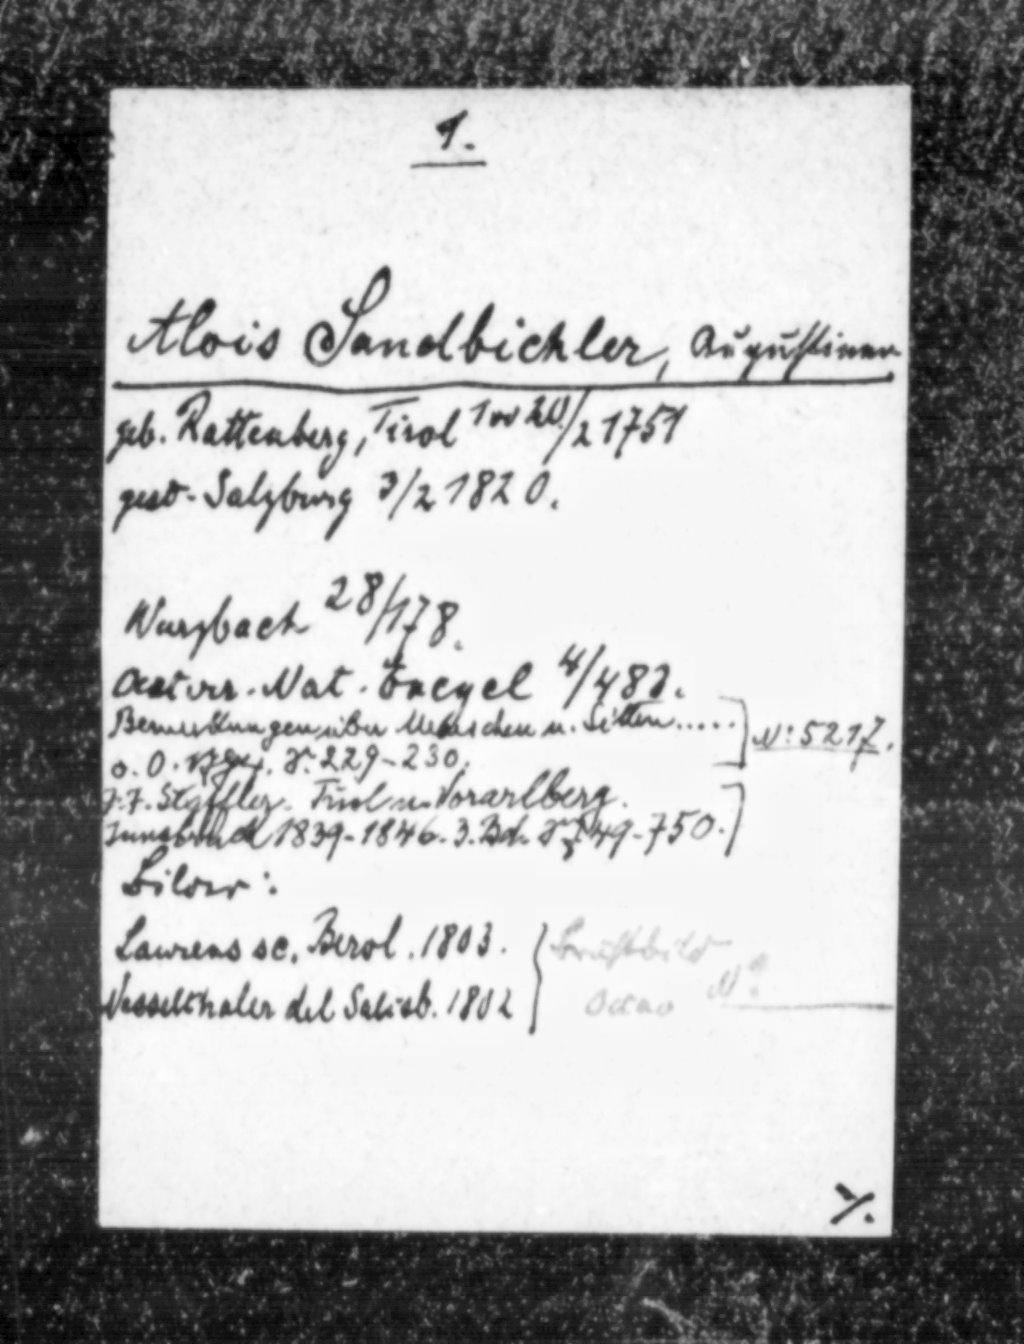 1.
Alois Sandbichler, Augustiner
geb. Rattenberg, Tirol 1 od 20/2 1751
gest. Salzburg 3/2 1820.
Wurzbach 28/178.
Oesterr. Nat. Encycl 4/483.
Bemerkungen über Menschen u. Sitten..... N: 5217.
o. O. S. 229-230.
J. J. Staffler. Tirol u. Vorarlberg.
Innsbruck 1839-1846. 3. Bd. S. 749-750.
Bilder:
Laurens sc. Berol. 1803. Brustbild
Nesselthaler del Salisb. 1802 Octav N°
%.